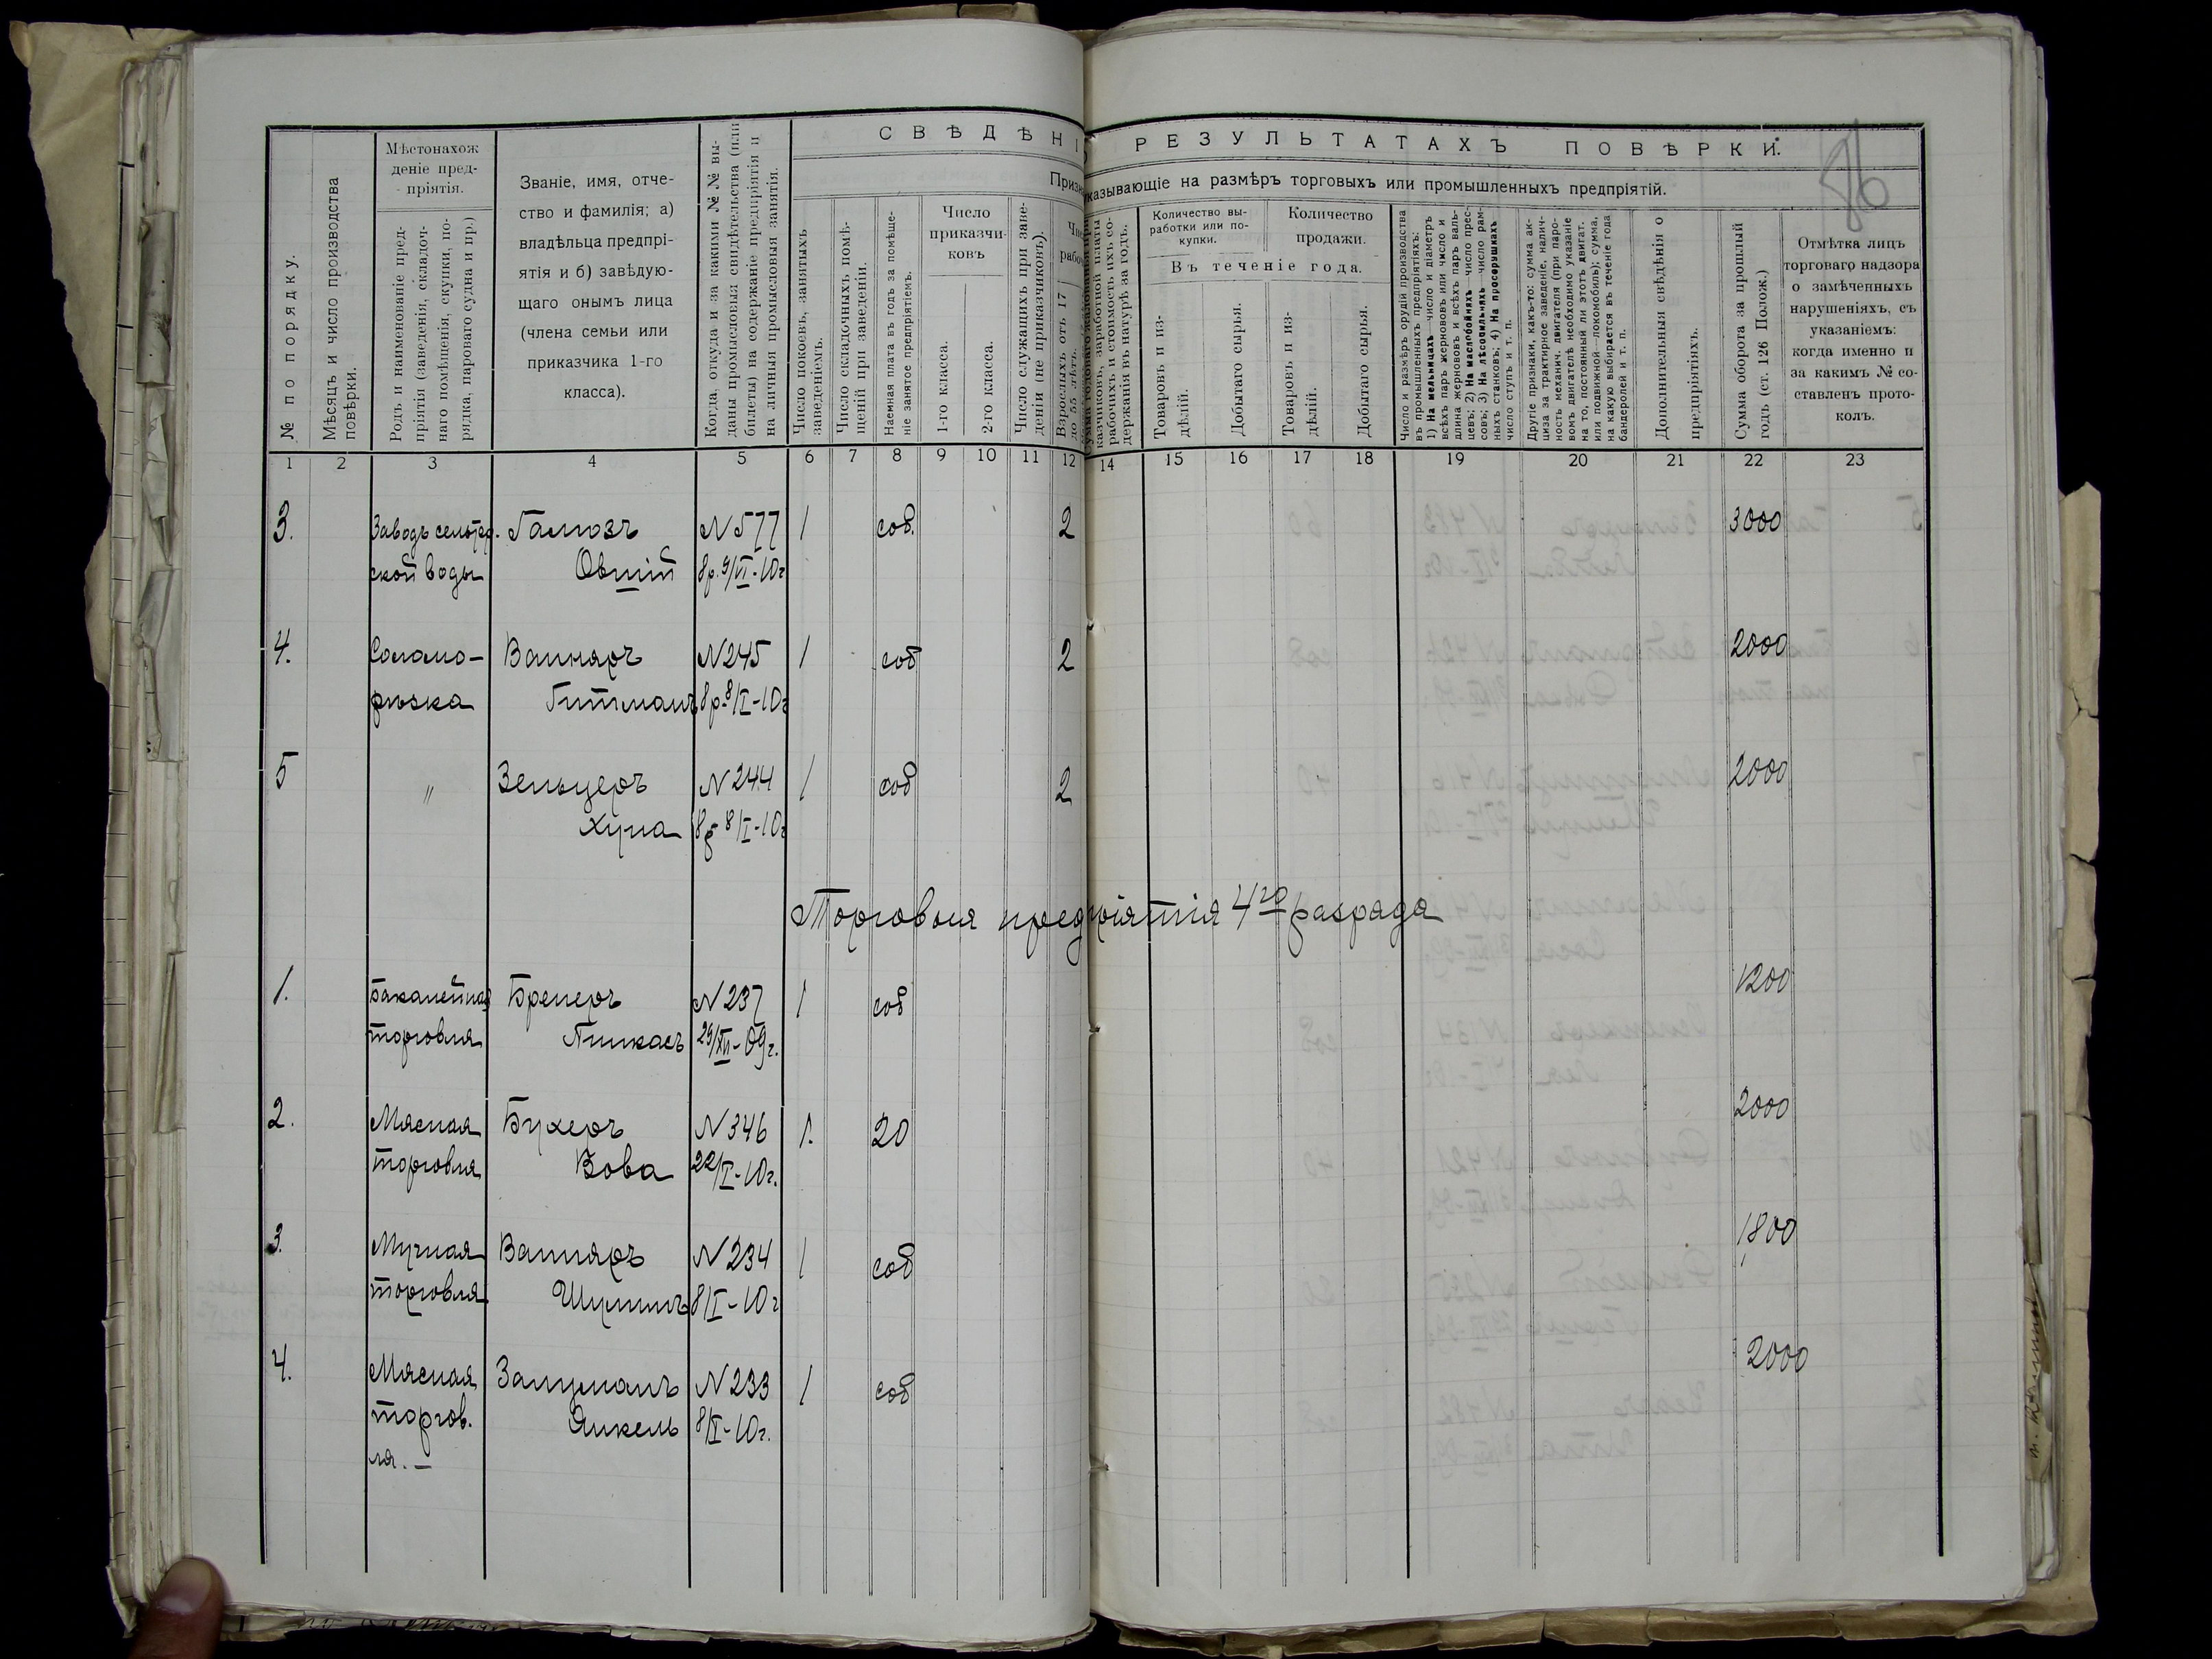 СВѢДѢНІ О РЕЗУЛЬТАТАХЪ ПОВѢРКИ.
56
Призн казывающіе на размѣръ торговыхъ или промышленныхъ предпріятій.
№ по порядку.
Мѣсяцъ и число производства
повѣрки.
Мѣстонахож
деніе пред-
пріятія.
Родъ и наименованіе пред-
пріятія (заведенія, складоч-
наго помѣщенія, скупки, по-
рядка, пароваго судна и пр.)
Званіе, имя, отче-
ство и фамилія; а)
владѣльца предпрі-
ятія и б) завѣдую-
щаго онымъ лица
(члена семьи или
приказчика 1-го
класса).
Когда, откуда и за какими №№ вы-
даны промысловыя свидѣтельства (или
билеты) на содержаніе предпріятія и
на личныя промысловыя занятія.
Число покоевъ, занятыхъ
заведеніемъ.
Число складочныхъ помѣ-
щеній при заведеніи.
Наемная плата въ годъ за помѣще-
ніе занятое предпріятіемъ.
Число
приказчи-
ковъ
1-го класса.
2-го класса.
Число служащихъ при заве-
деніи (не приказчиковъ).
Чи
рабо
Взрослыхъ отъ 17
до 55 лѣтъ.
казчиковъ, заработной платы
рабочихъ и стоимость ихъ со-
держанія въ натурѣ за годъ.
Количество вы-
работки или по-
купки.
Количество
продажи.
Въ теченіе года.
Товаровъ и из-
дѣлій.
Добытаго сырья.
Товаровъ и из-
дѣлій.
Добытаго сырья.
Число и размѣръ орудій производства
въ промышленныхъ предпріятіяхъ:
1) На мельницахъ число и діаметръ
всѣхъ паръ жернововъ или число и
длина жернововъ и всѣхъ паръ валь-
цевъ; 2) На маслобойняхъ число прес-
совъ; 3) На лѣсопильняхъ число рам-
ныхъ станковъ; 4) На просорушкахъ
число ступъ и т. п.
Другіе признаки, какъ-то: сумма ак-
циза за трактирное заведеніе, налич-
ность механич. двигателя (при паро-
вомъ двигателѣ необходимо указаніе
на то, постоянный ли этотъ двигат.
или подвижной—локомобиль); сумма,
на какую выбирается въ теченіе года
бандеролей и т. п.
Дополнительныя свѣдѣнія о
предпріятіяхъ.
Сумма оборота за прошлый
годъ (ст. 126 Полож.)
Отмѣтка лицъ
торговаго надзора
о замѣченныхъ
нарушеніяхъ, съ
указаніемъ:
когда именно и
за какимъ № со-
ставленъ прото-
колъ.
1 2 3 4 5 6 7 8 9 10 11 12 14 15 16 17 18 19 20 21 22 23
3. Заводъ сельтер. Гамозъ N 577 1 соб. 2 3000
ской воды Овшій 8р. 9/VI-10г
4. Соломо- Вайнеръ N 245 1 соб 2 2000
рѣзка Гитманъ 8р. 8/I-10г
5 " Зельцеръ N 244 1 соб 2 2000
Хуна 8р 8/I-10г
Торговыя предпріятія 4го разряда
1. Бакалейная Бренеръ N 237 1 соб 1200
торговля Пинкасъ 29/XII-09г.
2. Мясная Бухеръ N 346 1. 20 2000
торговля Вова 22/I-10г.
3. Мучная Вайнеръ N 234 1 соб 1800
торговля Шулимъ 8/I-10г
4. Мясная Зальцманъ N 233 1 соб 2000
торгов. Янкель 8/I-10г.
ля. —